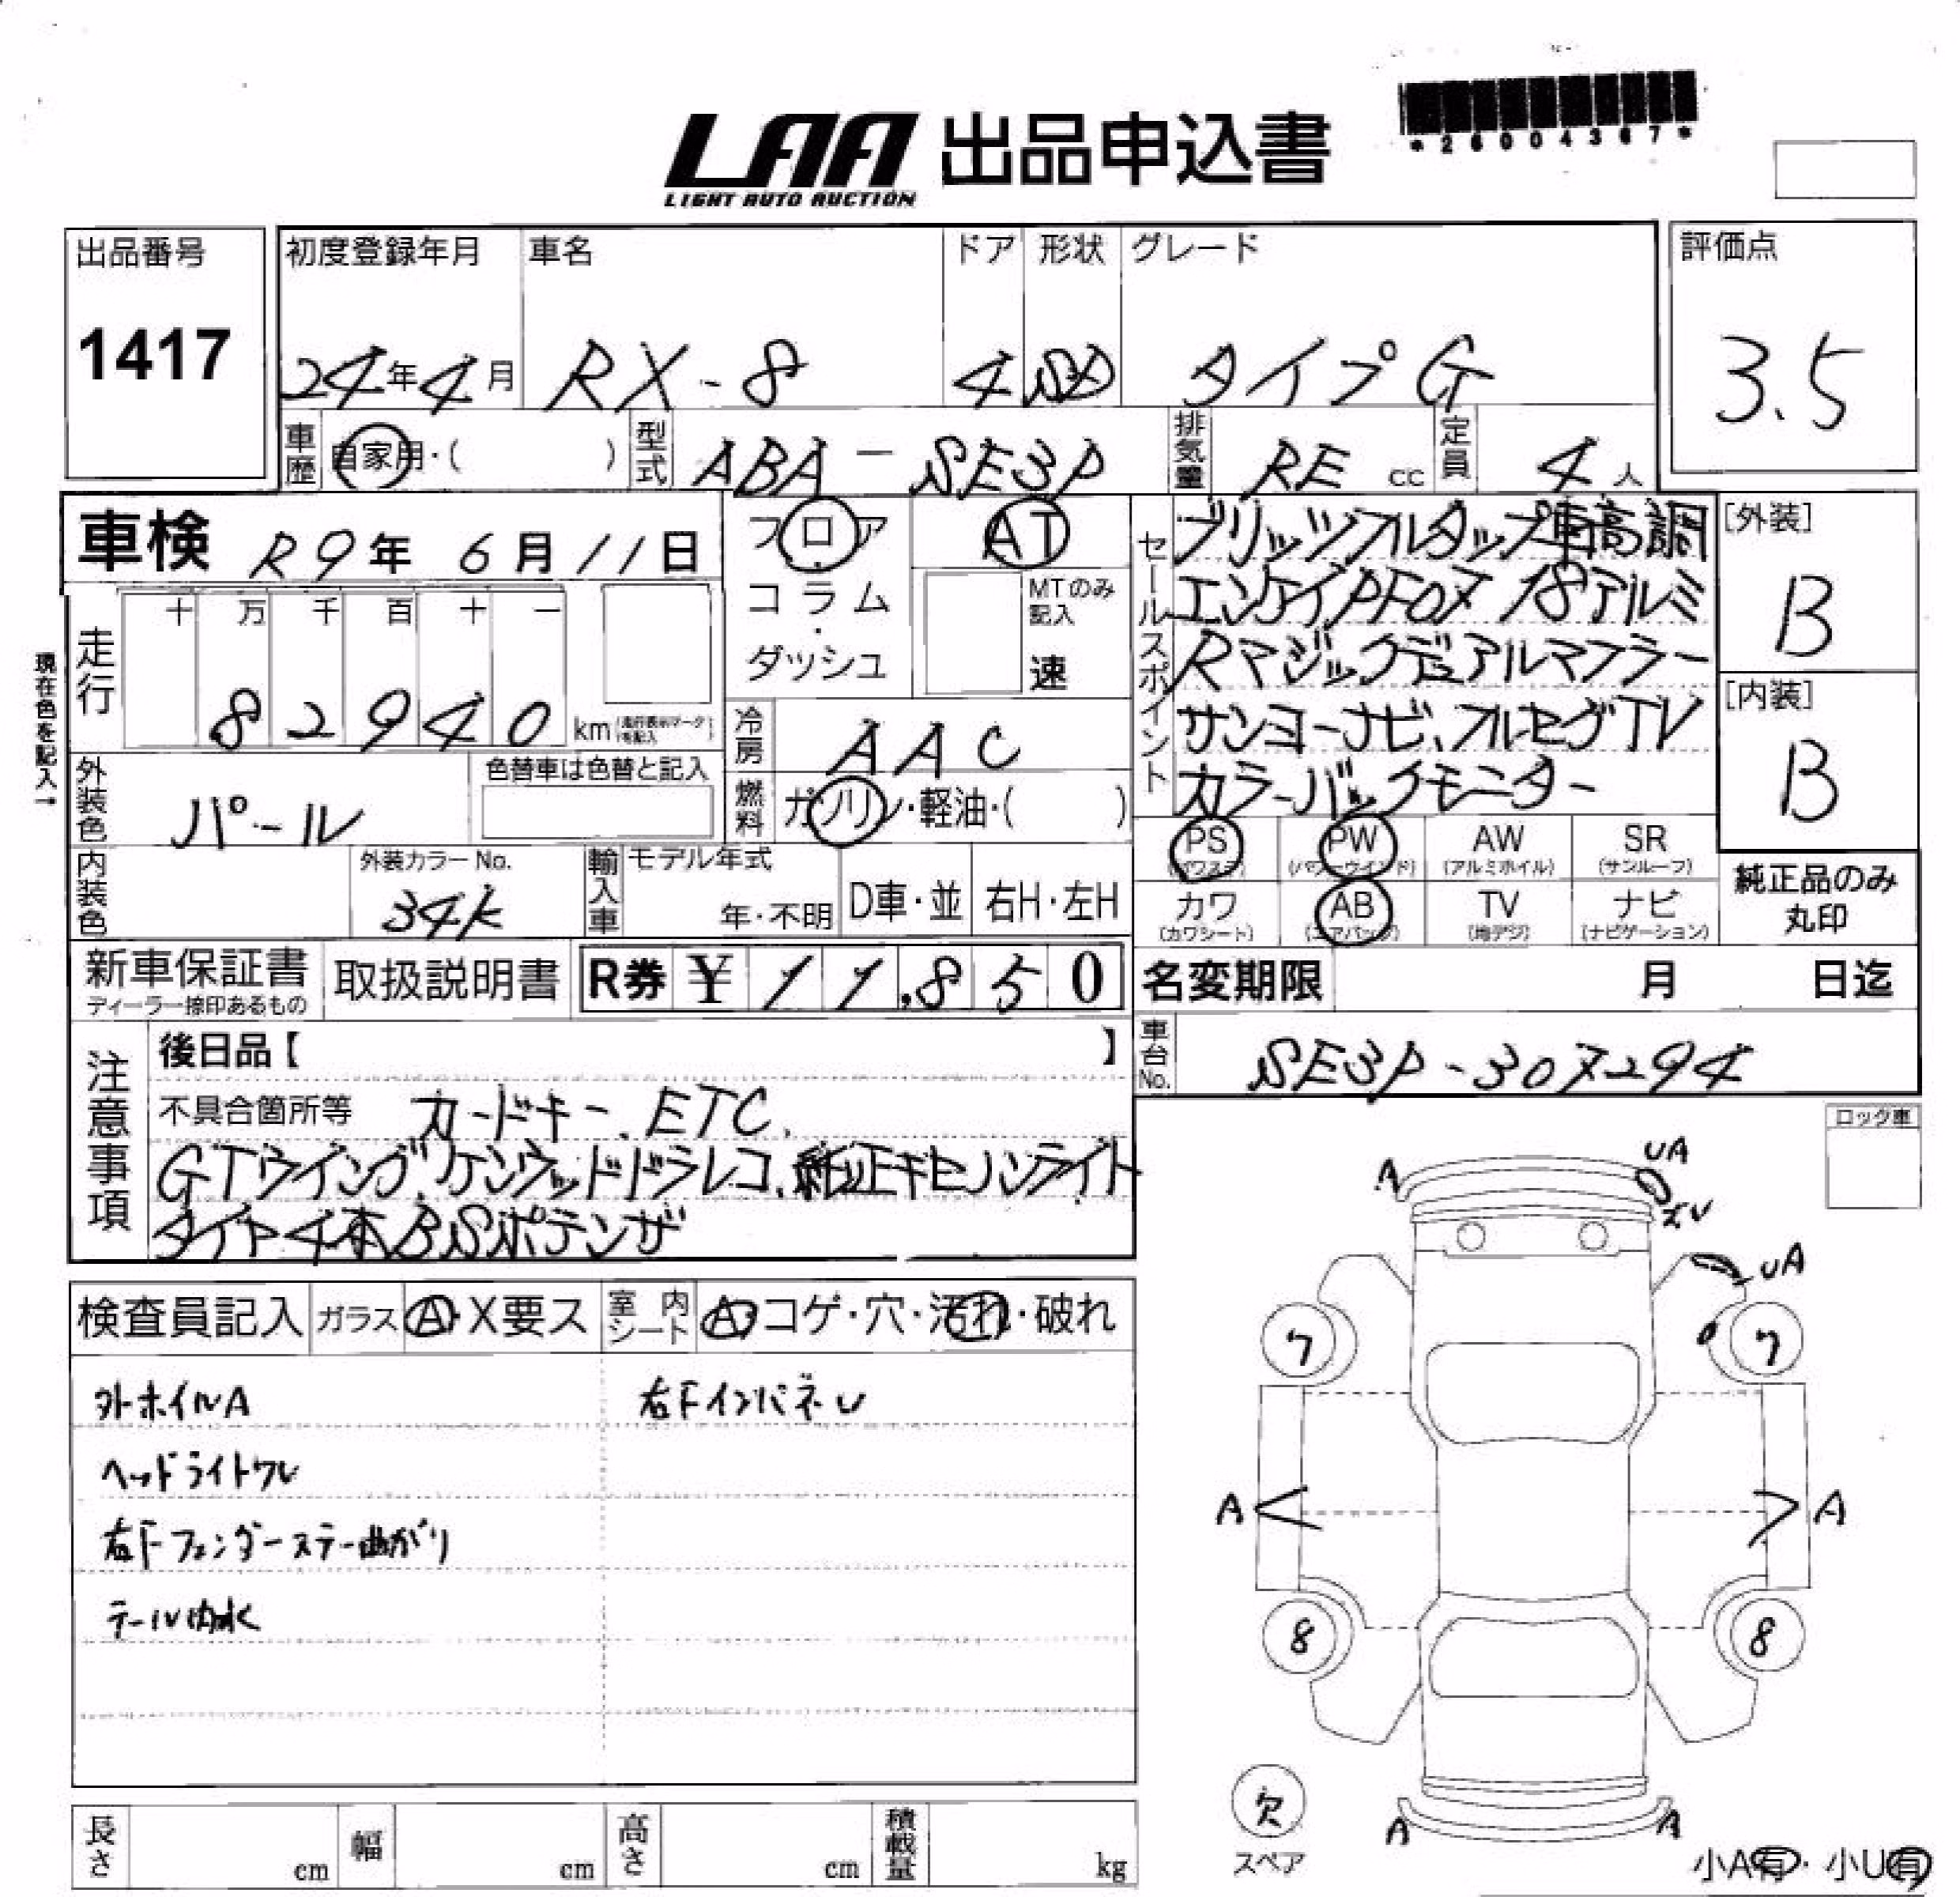 LAA 出品申込書
LIGHT AUTO AUCTION
*26004367*
出品番号
1417
初度登録年月 車名 ドア 形状 グレード
24年4月 RX-8 4 SD タイプG
評価点
3.5
車歴 自家用・( ) 型式 ABA-SE3P 排気量 RE cc 定員 4人
車検 R9年6月11日
フロア
コラム
・
ダッシュ
AT
MTのみ
記入
速
セールスポイント
ブリッツフルタップ車高調
エンケイPF07 18アルミ
Rマジックデュアルマフラー
サンヨーナビ、フルセグTV
カラーバックモニター
[外装]
B
[内装]
B
現在色を記入→
走行 十 万 千 百 十 一
8 2 9 4 0 km (走行表示マークを記入)
冷房 AAC
燃料 ガソリン・軽油・( )
外装色 パール
色替車は色替と記入
内装色
外装カラーNo.
34K
輸入車 モデル年式
年・不明 D車・並 右H・左H
PS (パワステ) PW (パワーウインド) AW (アルミホイル) SR (サンルーフ)
カワ (カワシート) AB (エアバッグ) TV (地デジ) ナビ (ナビゲーション)
純正品のみ
丸印
新車保証書
ディーラー捺印あるもの
取扱説明書
R券 ¥ 11,850
名変期限 月 日迄
車台No. SE3P-307294
注意事項
後日品【 】
不具合箇所等 カードキー、ETC、
GTウイング、ケンウッドドラレコ、純正キセノンライト
タイヤ4本BSポテンザ
ロック車
検査員記入 ガラス A・X要ス 室内シート A・コゲ・穴・汚れ・破れ
外ホイルA 右Fインパネレ
ヘッドライトワレ
右Fフェンダーステー曲がり
テール内水
A UA
ズレ
UA
7 7
A A
8 8
欠
スペア
A A
小A有・小U有
長さ cm 幅 cm 高さ cm 積載量 kg